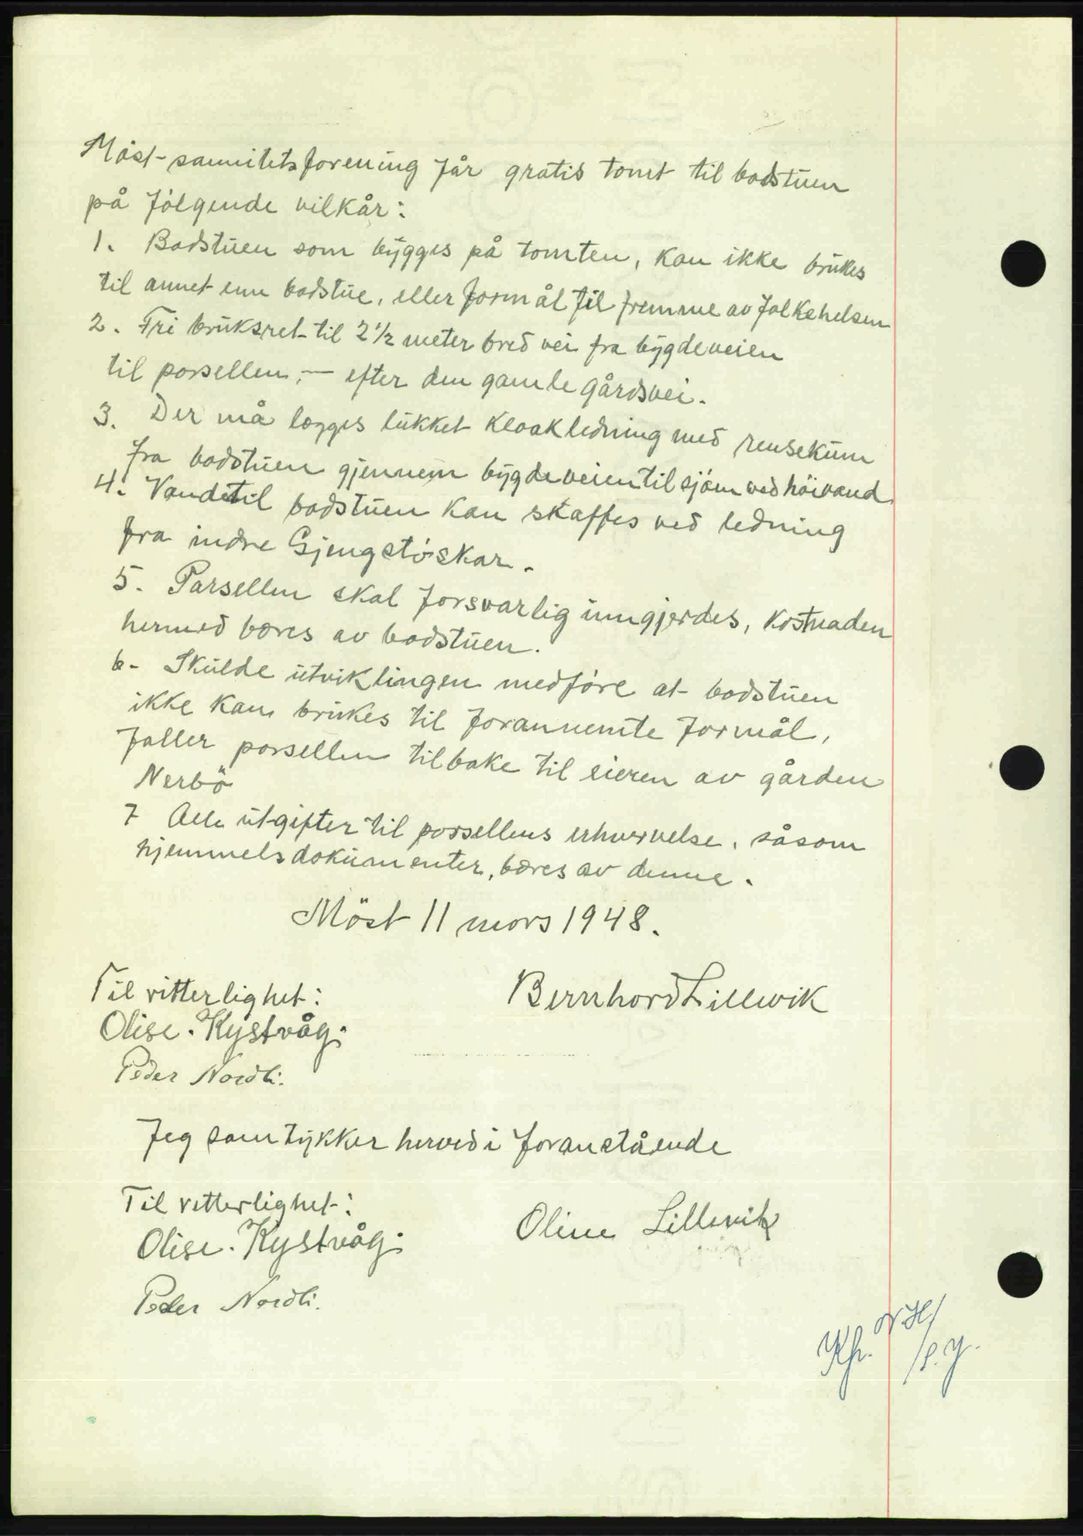 Möst-sannitetsforening får gratis tomt til badstuen
på følgende vilkår:
1. Badstuen som bygges på tomten, kan ikke brukes
til annet enn badstue, eller formål til fremme av folkehelsen
2. Fri bruksret til 2½ meter bred vei fra bygdeveien
til parsellen, — efter den gamle gårdsvei.
3. Der må legges lukket kloakledning med rensekum
fra badstuen gjennem bygdeveien til sjöen ved höivand
4. Vand til badstuen kan skaffes ved ledning
fra indre Gjengstöskar.
5. Parsellen skal forsvarlig inngjerdes, kostnaden
hermed bæres av badstuen.
6- Skulde utviklingen medföre at badstuen
ikke kan brukes til forannemte formål,
faller parsellen tilbake til eieren av gården
Nerbö
7 Alle utgifter til parsellens erhvervelse, såsom
hjemmelsdokumenter, bæres av denne.
Möst 11 mars 1948.
Til vitterlighet: Bernhard Lillevik
Olise. Kystvåg.
Peder Nordli.
Jeg samtykker herved i foranstående
Til vitterlighet: Oline Lillevik
Olise. Kystvåg.
Peder Nordli.
Kfr.